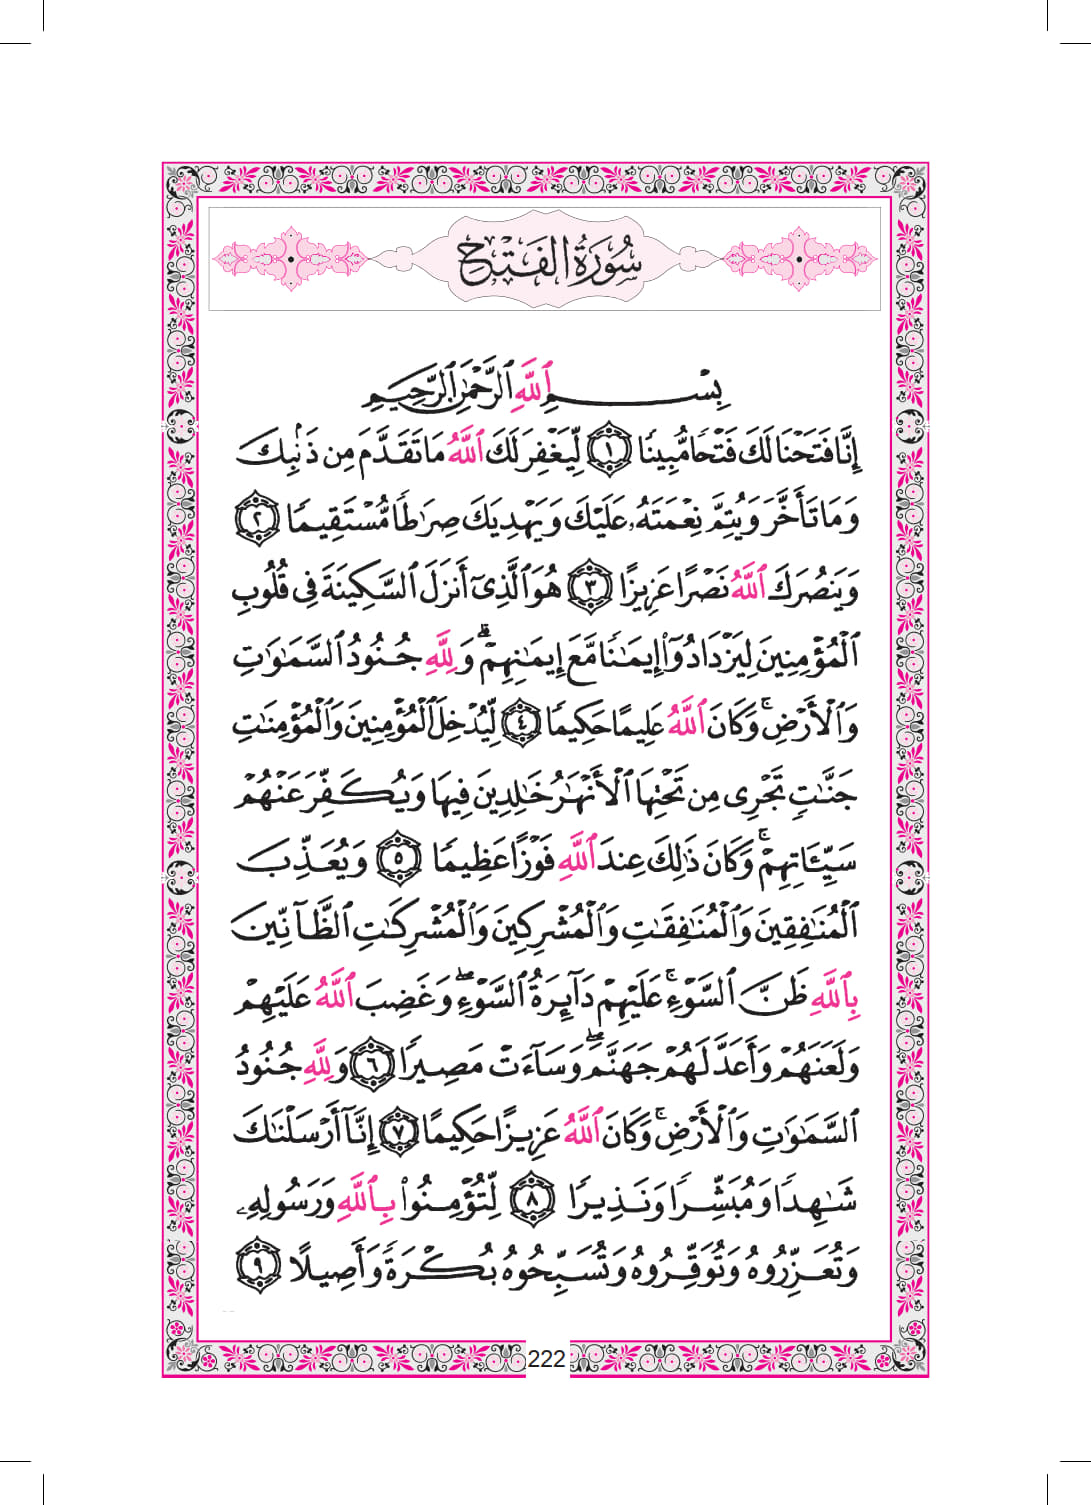 سُورَةُ الْفَتْحِ
بِسْمِ ٱللَّهِ ٱلرَّحْمَٰنِ ٱلرَّحِيمِ
إِنَّا فَتَحْنَا لَكَ فَتْحًا مُّبِينًا ١ لِّيَغْفِرَ لَكَ ٱللَّهُ مَا تَقَدَّمَ مِن ذَنۢبِكَ
وَمَا تَأَخَّرَ وَيُتِمَّ نِعْمَتَهُۥ عَلَيْكَ وَيَهْدِيَكَ صِرَٰطًا مُّسْتَقِيمًا ٢
وَيَنصُرَكَ ٱللَّهُ نَصْرًا عَزِيزًا ٣ هُوَ ٱلَّذِىٓ أَنزَلَ ٱلسَّكِينَةَ فِى قُلُوبِ
ٱلْمُؤْمِنِينَ لِيَزْدَادُوٓا۟ إِيمَٰنًا مَّعَ إِيمَٰنِهِمْ ۗ وَلِلَّهِ جُنُودُ ٱلسَّمَٰوَٰتِ
وَٱلْأَرْضِ ۚ وَكَانَ ٱللَّهُ عَلِيمًا حَكِيمًا ٤ لِّيُدْخِلَ ٱلْمُؤْمِنِينَ وَٱلْمُؤْمِنَٰتِ
جَنَّٰتٍ تَجْرِى مِن تَحْتِهَا ٱلْأَنْهَٰرُ خَٰلِدِينَ فِيهَا وَيُكَفِّرَ عَنْهُمْ
سَيِّـَٔاتِهِمْ ۚ وَكَانَ ذَٰلِكَ عِندَ ٱللَّهِ فَوْزًا عَظِيمًا ٥ وَيُعَذِّبَ
ٱلْمُنَٰفِقِينَ وَٱلْمُنَٰفِقَٰتِ وَٱلْمُشْرِكِينَ وَٱلْمُشْرِكَٰتِ ٱلظَّآنِّينَ
بِٱللَّهِ ظَنَّ ٱلسَّوْءِ ۚ عَلَيْهِمْ دَآئِرَةُ ٱلسَّوْءِ ۖ وَغَضِبَ ٱللَّهُ عَلَيْهِمْ
وَلَعَنَهُمْ وَأَعَدَّ لَهُمْ جَهَنَّمَ ۖ وَسَآءَتْ مَصِيرًا ٦ وَلِلَّهِ جُنُودُ
ٱلسَّمَٰوَٰتِ وَٱلْأَرْضِ ۚ وَكَانَ ٱللَّهُ عَزِيزًا حَكِيمًا ٧ إِنَّآ أَرْسَلْنَٰكَ
شَٰهِدًا وَمُبَشِّرًا وَنَذِيرًا ٨ لِّتُؤْمِنُوا۟ بِٱللَّهِ وَرَسُولِهِۦ
وَتُعَزِّرُوهُ وَتُوَقِّرُوهُ وَتُسَبِّحُوهُ بُكْرَةً وَأَصِيلًا ٩
222